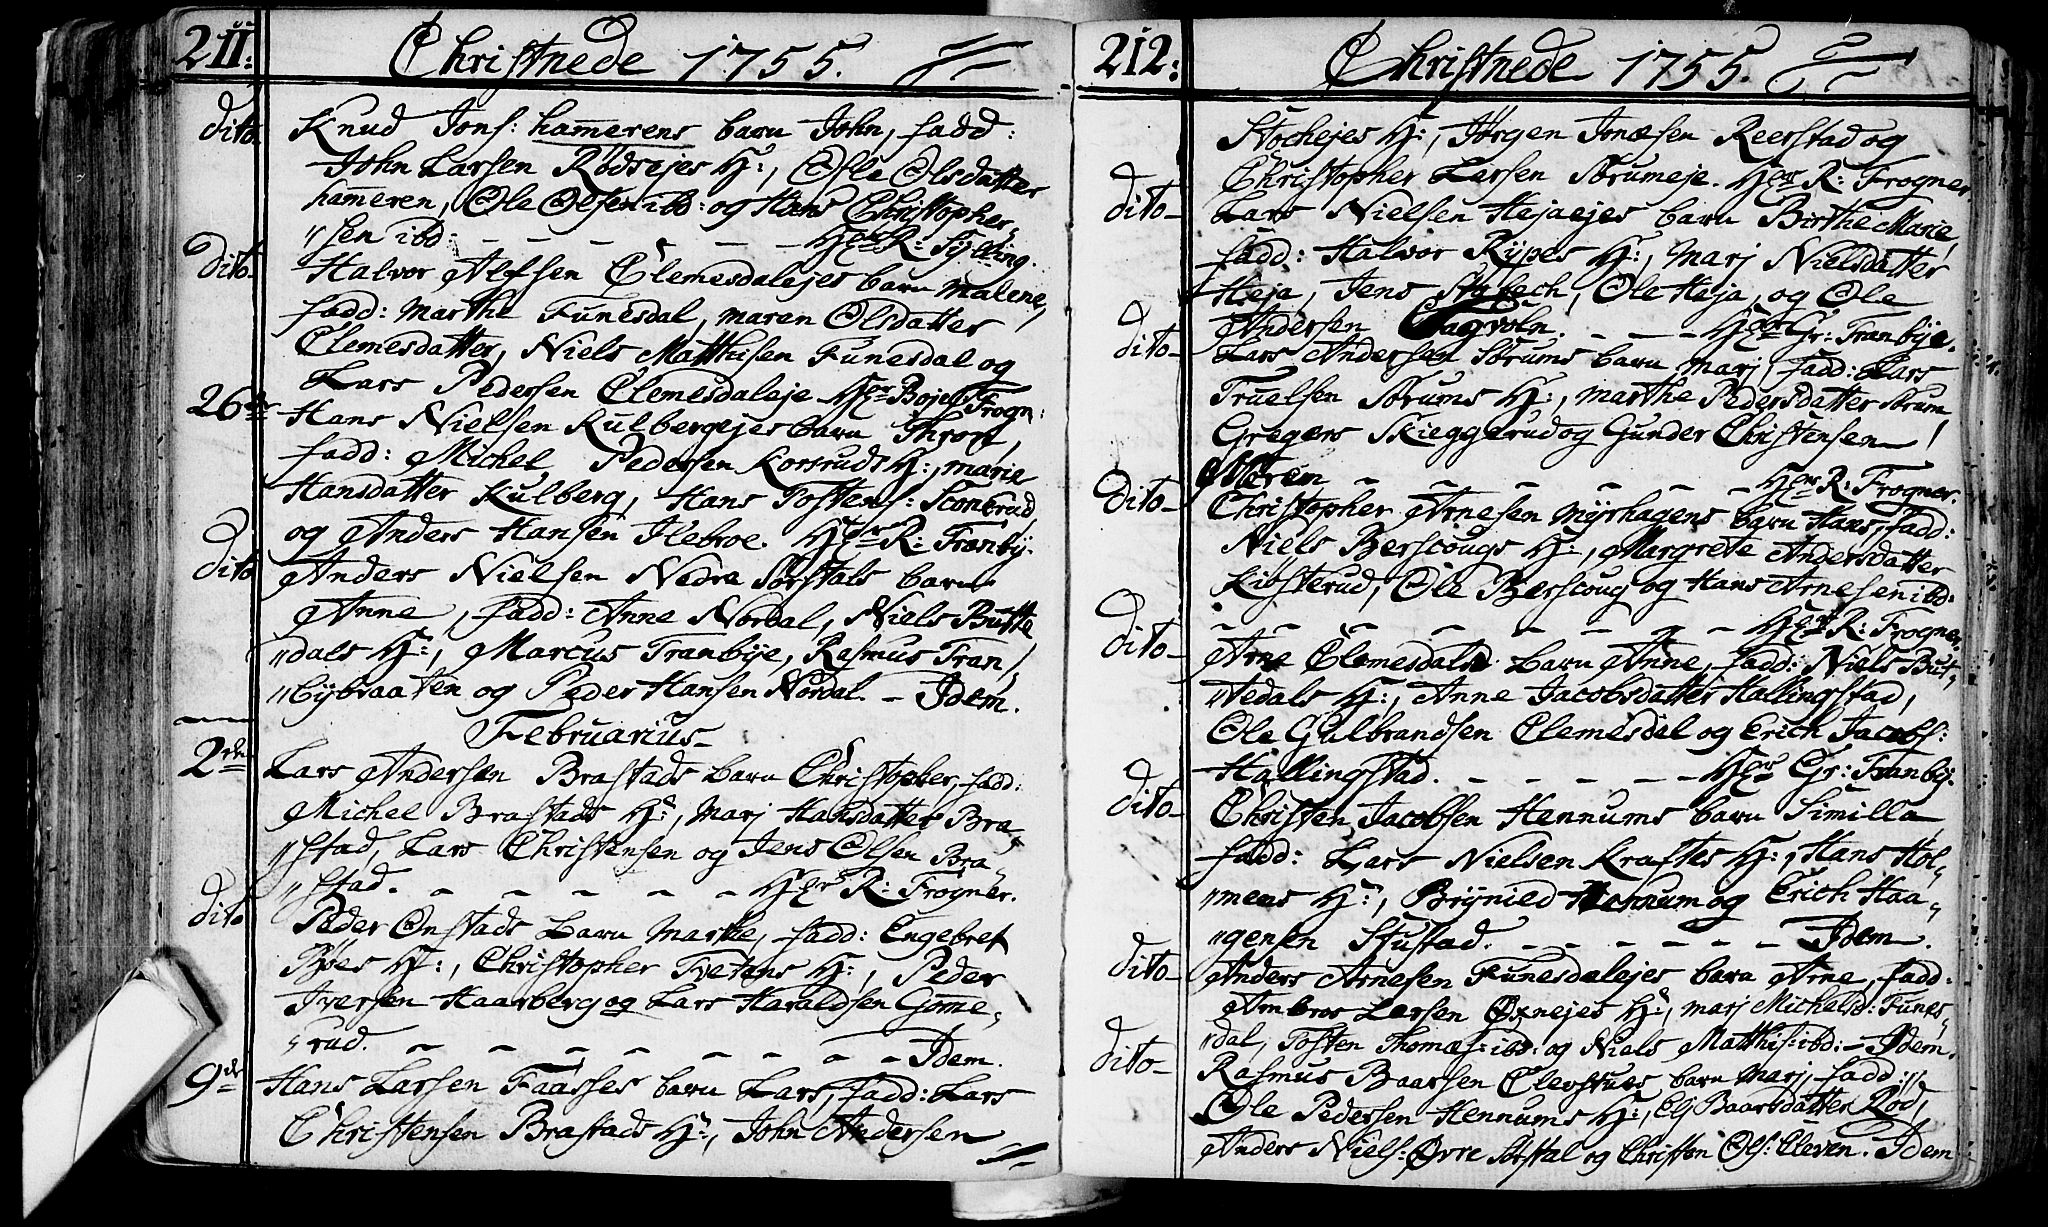 211:
Christnede 1755.
dito. Knud Jons: hamerens barn John, fadd:
John Larsen Rødsejes H:, Ofle Olsdatter
hameren, Ole Olsen ibd: og Hans Christopher,
"sen ibd: - - - - - - Hr R: Sylling.
dito Halvor Alofsen Clemesdalejes barn Malene,
fadd: Marthe Funesdal, maren Olsdatter
Clemesdatter, Niels Matthisen Funesdal og
Lars Pedersen Clemesdaleje
26de Hans Nielsen Kulbergejes barn Thron,
fadd: Michel Pedersen Korsruds H:, marie
Hansdatter Kulberg, Hans Tostens: Sconerud
og Anders Hansen Ilebroe. R: Tranby.
dito Anders Nielsen Nedre Sørstals barn
Anne, fadd: Anne Nordal, Niels Butte
"dals H:, Marcus Tranbye, Rasmus Tran,
"bybraaten og Peder Hansen Nordal. - Idem.
Februarius
2den Lars Andersen Brastads barn Christopher, fadd:
Michel Brastads H:, Marj Hansdatter Bra,
"stad, Lars Christensen og Jens Olsen Bra
"stad. - - - - - - R: Frogner.
dito Peder Onstads barn Marthe, fadd: Engebret
Bøes H:, Christopher Tvetens H:, Peder
Iversen Haarberg og Lars Haraldsen Gome,
"rud. - - - - - - - - Idem.
9de Hans Larsen Faasses barn Lars, fadd: Lars
Christensen Brastads H:, John Andersen
212:
Christnede 1755.
Stochejes H:, Jørgen Jonæsen Reerstad og
Christopher Larsen Sørumeje. R: Frogner.
dito - Lars Nielsen Hejaejes barn Birthe Marie,
fadd: Halvor Rypes H:, Marj Nielsdatter
Heja, Jens, Ole Heja, og Ole
Andersen Tagvoln. - - - Gr: Tranbye.
dito - Lars Andersen Sørums barn Marj, fadd: Lars
Truelsen Sørums H:, Marthe Pedersdatter Sørum,
Gregers Skieggerud og Gunder Christensen
Meren - - - - - - R: Frogner.
dito - Christopher Arnesen Myrhagens barn Hans, fadd:
Niels Berscougs H:, Margrete Andersdatter
Kibsterud, Ole Berscoug og Hans Arnesen ibd:
- - - - - - - - R: Frogner.
dito - Arne Clemesdals barn Anne, fadd: Niels But,
"tedals H:, Anne Jacobsdatter Hallingstad,
Ole Gulbrandsen Clemesdal og Erich Jacobs:
Hallingstad. - - - - - Gr: Tranby.
dito - Christen Jacobsen Hennums barn Similla,
fadd: Lars Nielsen Kraftes H:, Hans Hol,
"mens H:, Brynild Hennum og Erich Haa,
"gensn Stustad. - - - - - - Idem.
dito - Anders Arnesen Funesdalejes barn Arne, fadd:
Ambros Larsen Oxnejes H:, Marj Michelsd: Funes,
"dal, Tosten Thomæs: ibd: og Niels Matthis: ibd: - Idem.
dito - Rasmus Baarsen Clevstues barn Marj, fadd:
Ole Pedersen Hennums H:, Elj Baarsdatter Rød,
Anders Niels: Øvre Sørstal og Christen Ols: Cleven. Idem